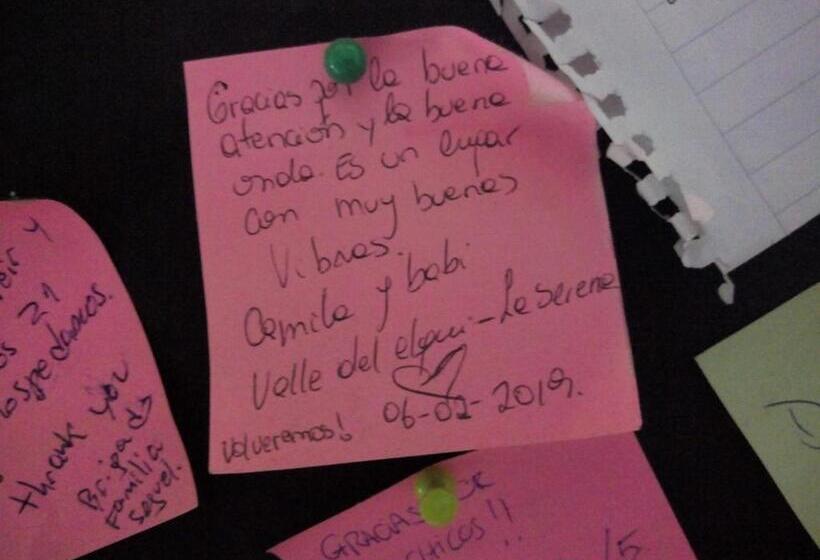 Gracias por la buena
atención y la buena
onda. Es un lugar
con muy buenas
Vibras.
Camila y babi
Valle del elqui - La Serena
06-02-2019.
Volveremos!
y
os 21
ospedarnos.
thank you
Familia
GRACIAS
CHICOS!!
15